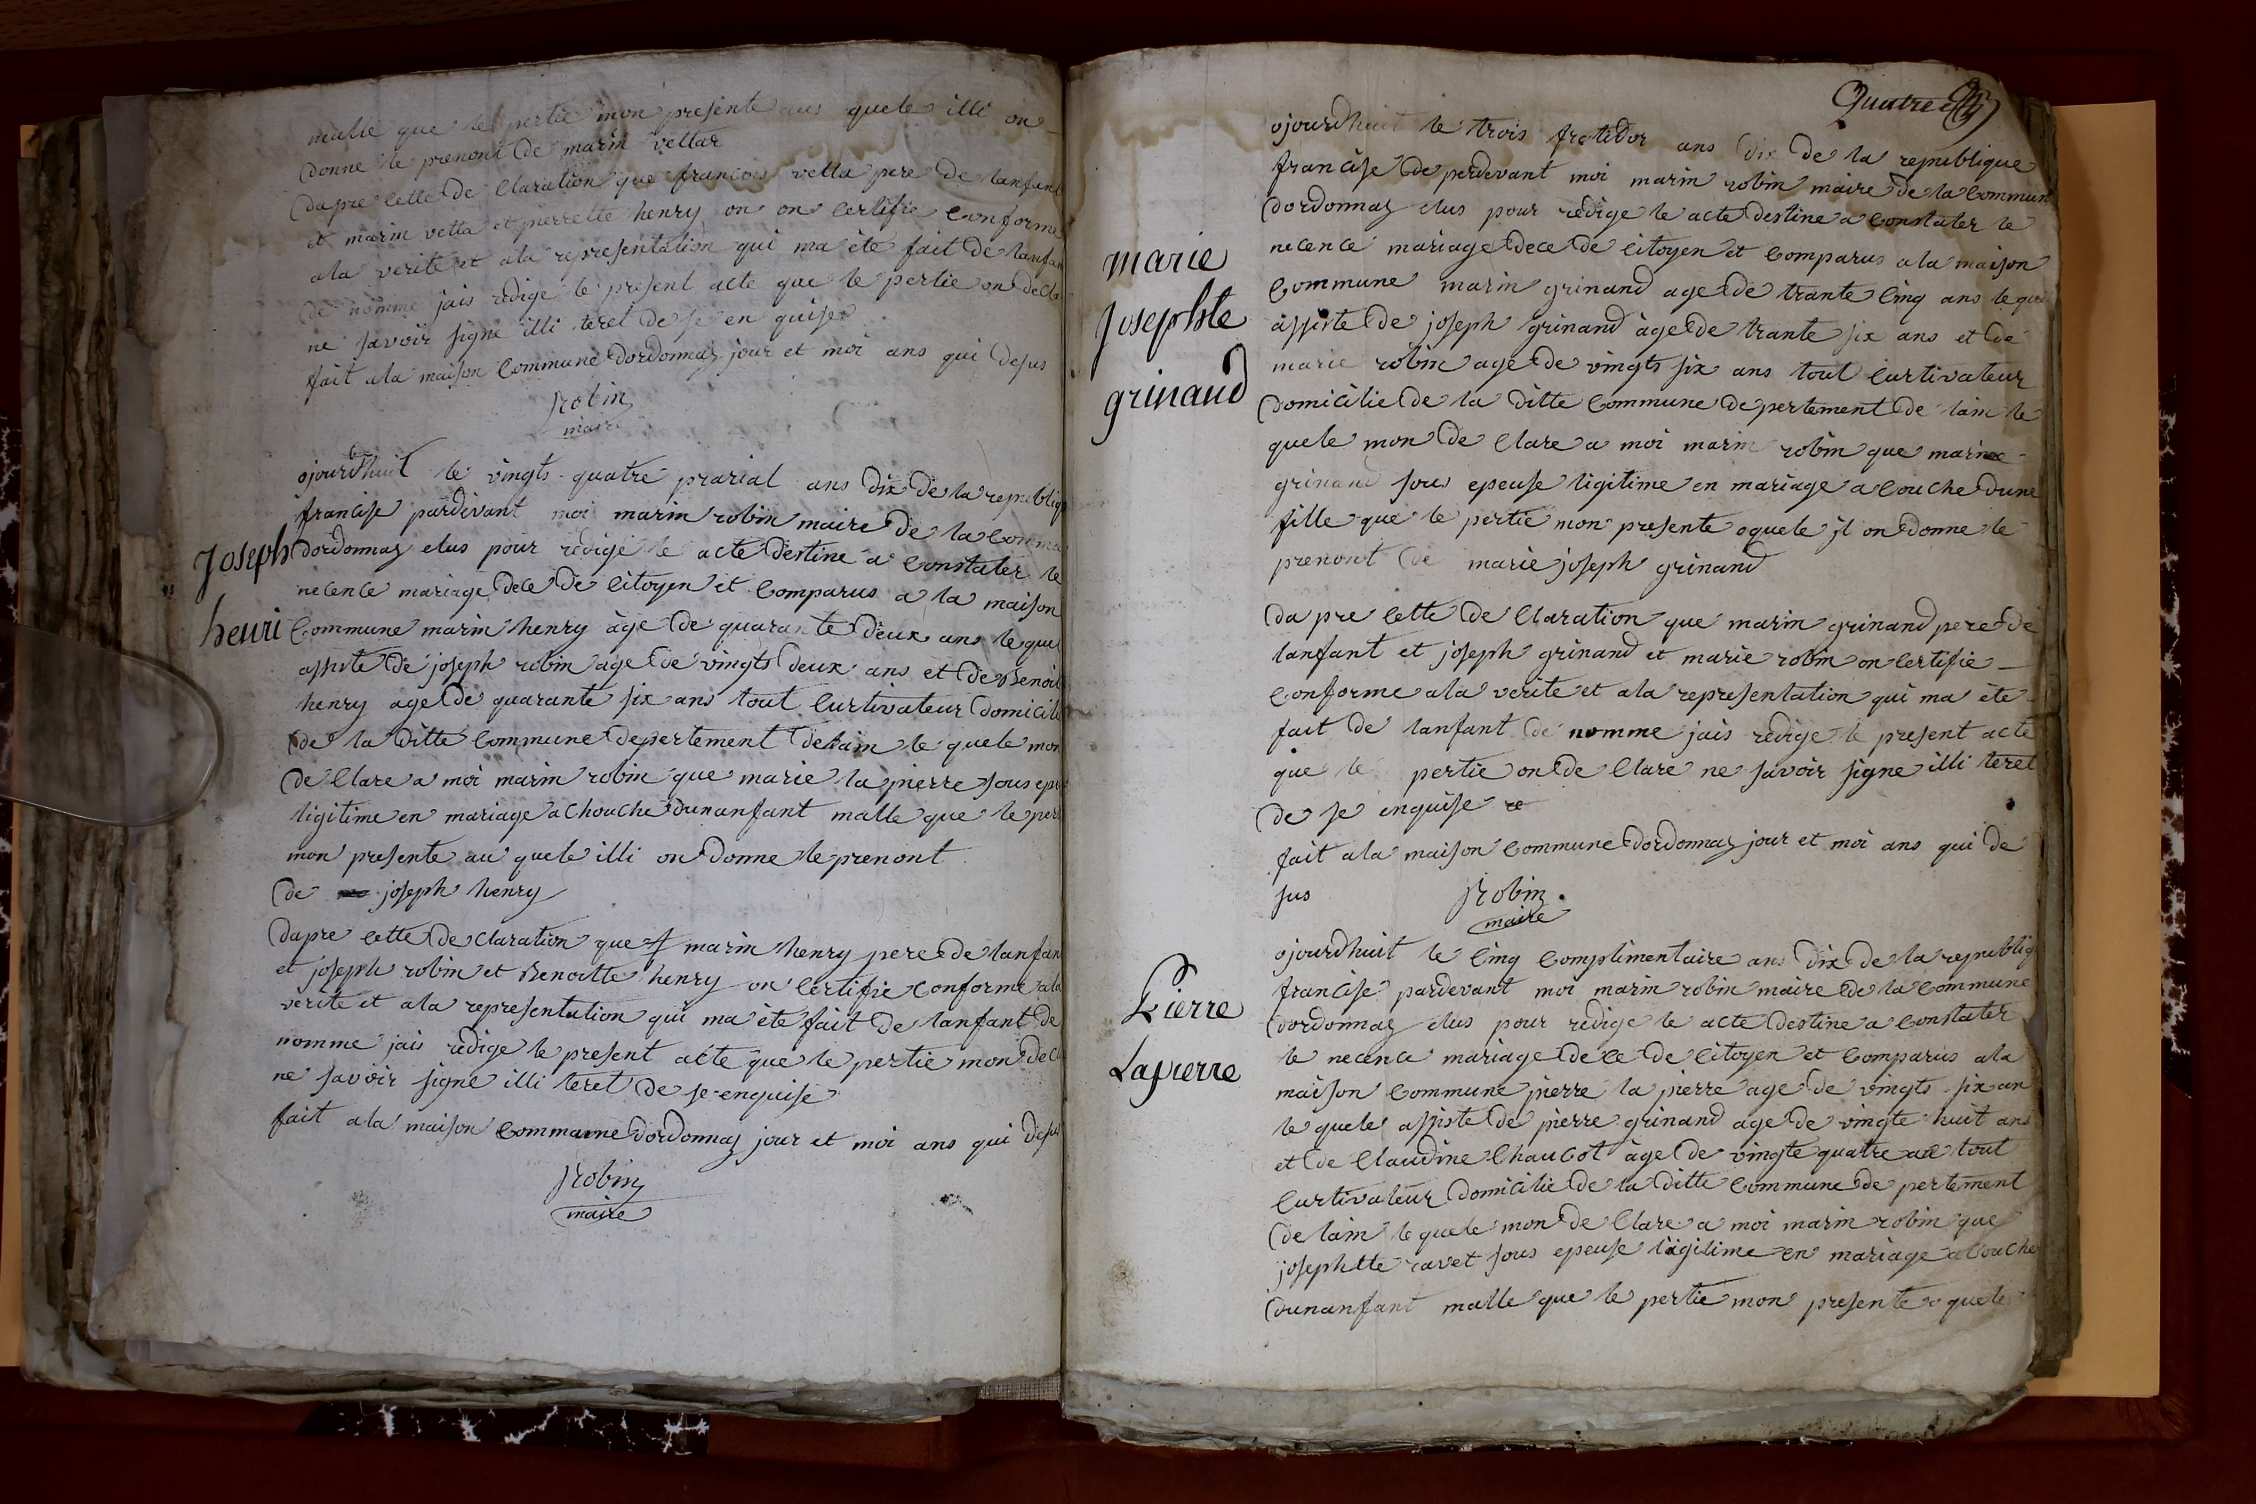 malle que le pertie mon presente aus quele illi on
donne le prenont de marin vellar
dapre cette de claration que francois vella pere de lanfant
et marin vella et pierrette henry on on certifie conforme
ala verite et ala representation qui ma ète fait de lanfan
de nomme jais redige le present acte que le pertie on decla
ne savoir signe illi teret de se en quise
fait ala maison commune dordonnaz jour et moi ans qui desus
Robin
maire
ojourdhuit le vingts quatre prarial ans dix de la republiq
francise pardevant moi marin robin maire de la commu
Joseph
dordonnaz elus pour redige le acte destine a constater le
necence mariage dece de citoyen et comparus a la maison
henri
commune marin henry àge de quarante deux ans le que
assiste de joseph robin age de vingts deux ans et de Benoit
henry age de quarante six ans tout curtivateur domicile
de la ditte commune depertement delain le quele mon
de clare a moi marin robin que marie la pierre sous epe
ligitime en mariage a chouche dunanfant malle que le pert
mon presente au quele illi on donne le prenont
de joseph henry
dapre cette de claration que marin henry pere de lanfan
et joseph robin et Benoitte henry on certifie conforme ala
verite et ala representation qui ma ète fait de lanfant de
nomme jais redige le present acte que le pertie mon decla
ne savoir signe illi teret de se enquise
fait ala maison commune dordonnaz jour et moi ans qui desus
Robin
maire
Quatre
ojourdhuit le trois fretidor ans dix de la republique
francise de perdevant moi marin robin maire de la commun
dordonnaz elus pour redige le acte destine a constater le
necence mariage dece de citoyen et comparus ala maison
marie
josephte
grinand
commune marin grinand age de trante cinq ans le que
assiste de joseph grinand àge de trante six ans et de
marie robin age de vingts six ans tout curtivateur
domicilie de la ditte commune depertement de lain le
quele mon de clare a moi marin robin que
grinand sous epeuse ligitime en mariage a couche dune
fille que le pertie mon presente oquele il on donne le
prenont de marie joseph grinand
da pre cette de claration que marin grinand pere de
lanfant et joseph grinand et marie robin on certifie
conforme ala verite et ala representation qui ma ète
fait de lanfant de nomme jais redige le present acte
que le pertie on de clare ne savoir signe illi teret
de se enquise
fait ala maison commune dordonnaz jour et moi ans qui de
sus
Robin
maire
ojourdhuit le cinq complimentaire ans dix de la republiq
francise pardevant moi marin robin maire de la commune
Pierre
Lapierre
dordonnaz elus pour redige le acte destine a constater
le necence mariage de ce de citoyen et comparus ala
maison commune pierre la pierre age de vingts six an
le quele assiste de pierre grinand age de vingte huit ans
et de claudine chaucot àge de vingte quatre tout
curtivateur domicilie de la ditte commune de pertement
de lain le quele mon de clare a moi marin robin que
josephtte ravet sous epeuse lagitime en mariage a couche
dunanfant malle que le pertie mon presente o quele